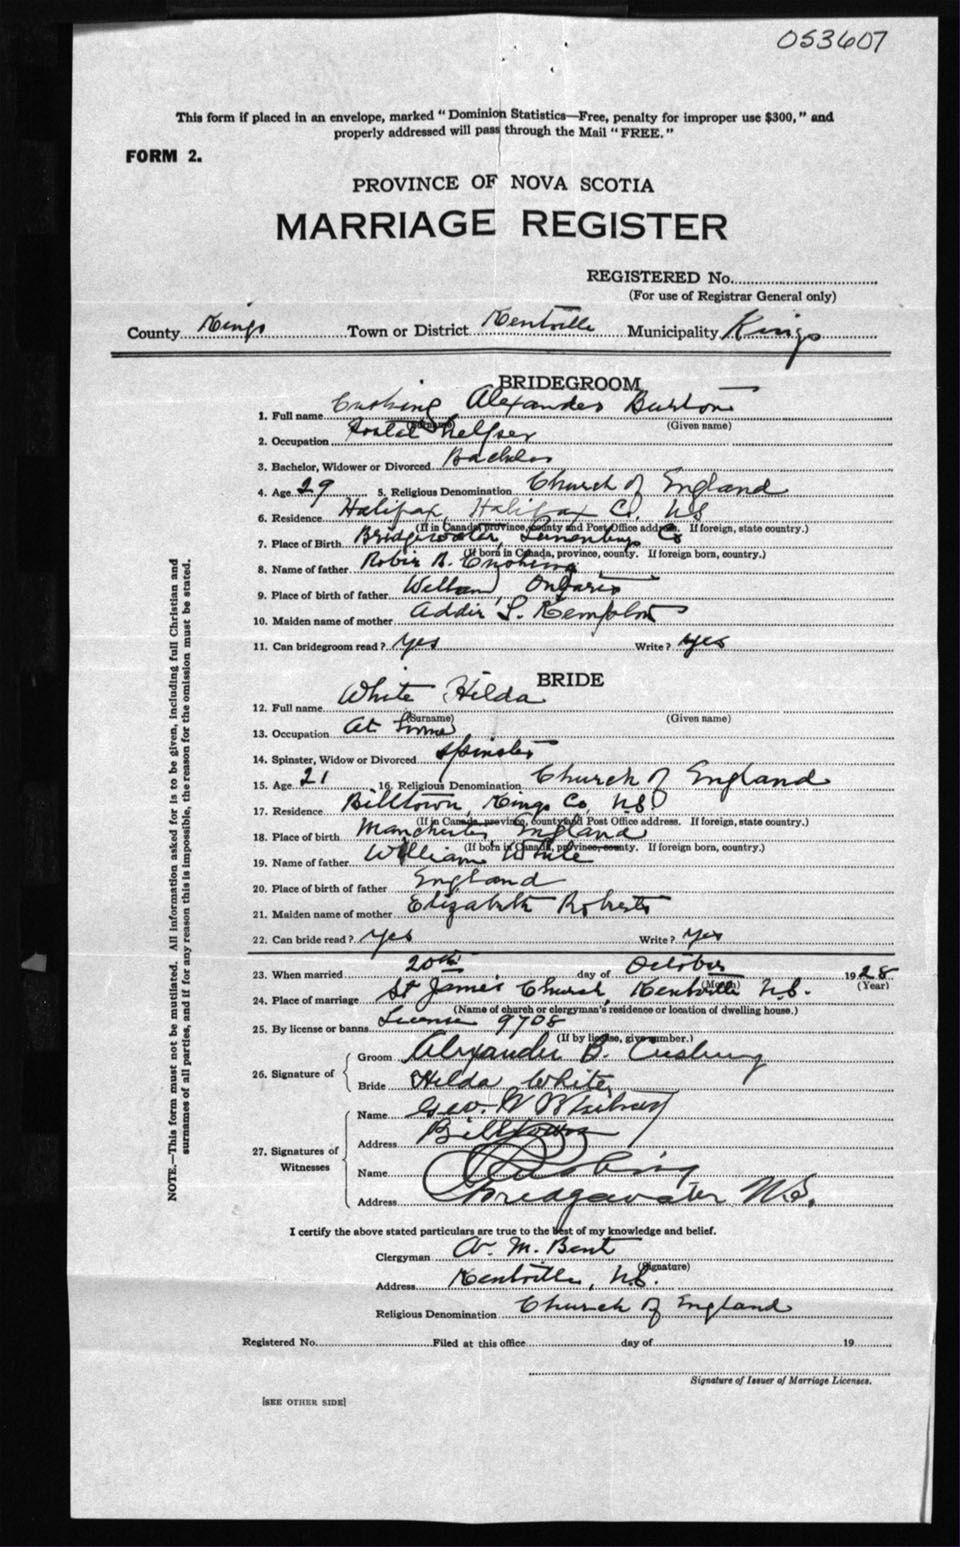 053607
This form if placed in an envelope, marked "Dominion Statistics—Free, penalty for improper use $300," and
properly addressed will pass through the Mail "FREE."
FORM 2.
PROVINCE OF NOVA SCOTIA
MARRIAGE REGISTER
REGISTERED No.
(For use of Registrar General only)
County Kings Town or District Kentville Municipality Kings
BRIDEGROOM
1. Full name Cushing Alexander Burton
(Surname) (Given name)
2. Occupation Postal helper
3. Bachelor, Widower or Divorced Bachelor
4. Age 29 5. Religious Denomination Church of England
6. Residence Halifax, Halifax Co, NS
(If in Canada, province, county and Post Office address. If foreign, state country.)
7. Place of Birth Bridgewater, Lunenburg Co
(If born in Canada, province, county. If foreign born, country.)
8. Name of father Cushing
9. Place of birth of father Welland, Ontario
10. Maiden name of mother Addie L. Kempton
11. Can bridegroom read? yes Write? yes
BRIDE
12. Full name White Hilda
(Surname) (Given name)
13. Occupation At home
14. Spinster, Widow or Divorced Spinster
15. Age 21 16. Religious Denomination Church of England
17. Residence Billtown, Kings Co, N.S.
(If in Canada, province, county and Post Office address. If foreign, state country.)
18. Place of birth Manchester England
(If born in Canada, province, county. If foreign born, country.)
19. Name of father William White
20. Place of birth of father England
21. Maiden name of mother Elizabeth Roberts
22. Can bride read? Yes Write? Yes
23. When married 20th day of October 1928
(Month) (Year)
24. Place of marriage St James Church, Kentville N.S.
(Name of church or clergyman's residence or location of dwelling house.)
25. By license or banns License 9708
(If by license, give number.)
26. Signature of
Groom Alexander B. Cushing
Bride Hilda White
27. Signatures of Witnesses
Name Geo. W
Address Billtown
Name Cushing
Address Bridgewater N.S.
I certify the above stated particulars are true to the best of my knowledge and belief.
Clergyman M. Bent
(Signature)
Address Kentville, N.S.
Religious Denomination Church of England
Registered No. Filed at this office day of 19
Signature of Issuer of Marriage Licenses.
[SEE OTHER SIDE]
NOTE.—This form must not be mutilated. All information asked for is to be given, including full Christian and
surnames of all parties, and if for any reason this is impossible, the reason for the omission must be stated.